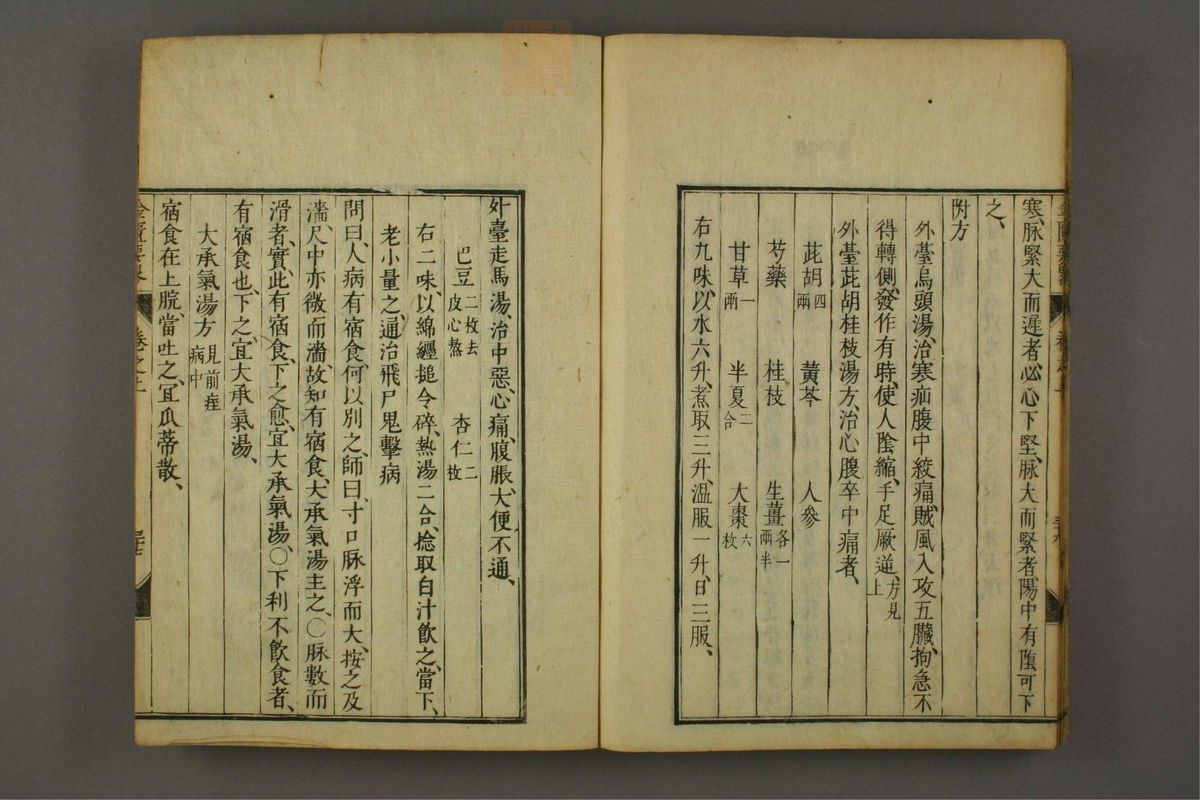 寒、脉緊大而遲者、必心下堅、脉大而緊者、陽中有陰、可下
之、
附方
外臺烏頭湯、治寒疝腹中絞痛、賊風入攻五臟、拘急不
得轉側、發作有時、使人陰縮、手足厥逆、方見上
外臺茈胡桂枝湯方、治心腹卒中痛者、
茈胡四兩 黃芩 人參
芍藥 桂枝 生薑各一兩半
甘草一兩 半夏二合 大棗六枚
右九味、以水六升、煮取三升、温服一升、日三服、
外臺走馬湯、治中惡、心痛、腹脹、大便不通、
巴豆二枚去皮心熬 杏仁二枚
右二味、以綿纏搥令碎、熱湯二合、捻取白汁飲之、當下、
老小量之、通治飛尸鬼擊病
問曰、人病有宿食、何以別之、師曰、寸口脉浮而大、按之反
濇、尺中亦微而濇、故知有宿食、大承氣湯主之、〇脉數而
滑者、實、此有宿食、下之愈、宜大承氣湯、〇下利不飲食者、
有宿食也、下之、宜大承氣湯、
大承氣湯方見前痓病中
宿食在上脘、當吐之、宜瓜蒂散、
金匱要畧 卷之上 三十七